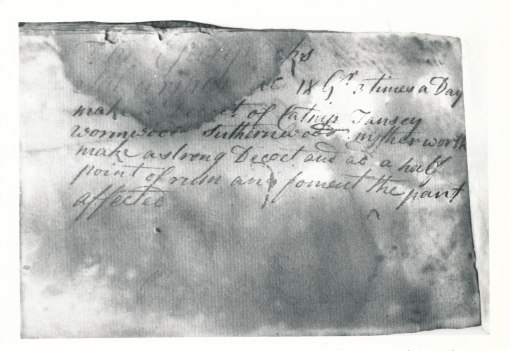 3 times a Day
make of Catnip Tansey
wormwood Suthernwood mytherworth
make a strong Decoct and ad a half
point of rum and foment the part
affected